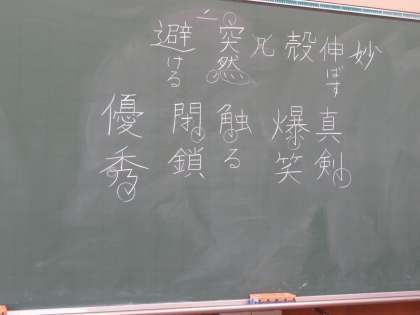 妙
伸ばす
殻
突然
避ける
真剣
爆笑
触る
閉鎖
優秀